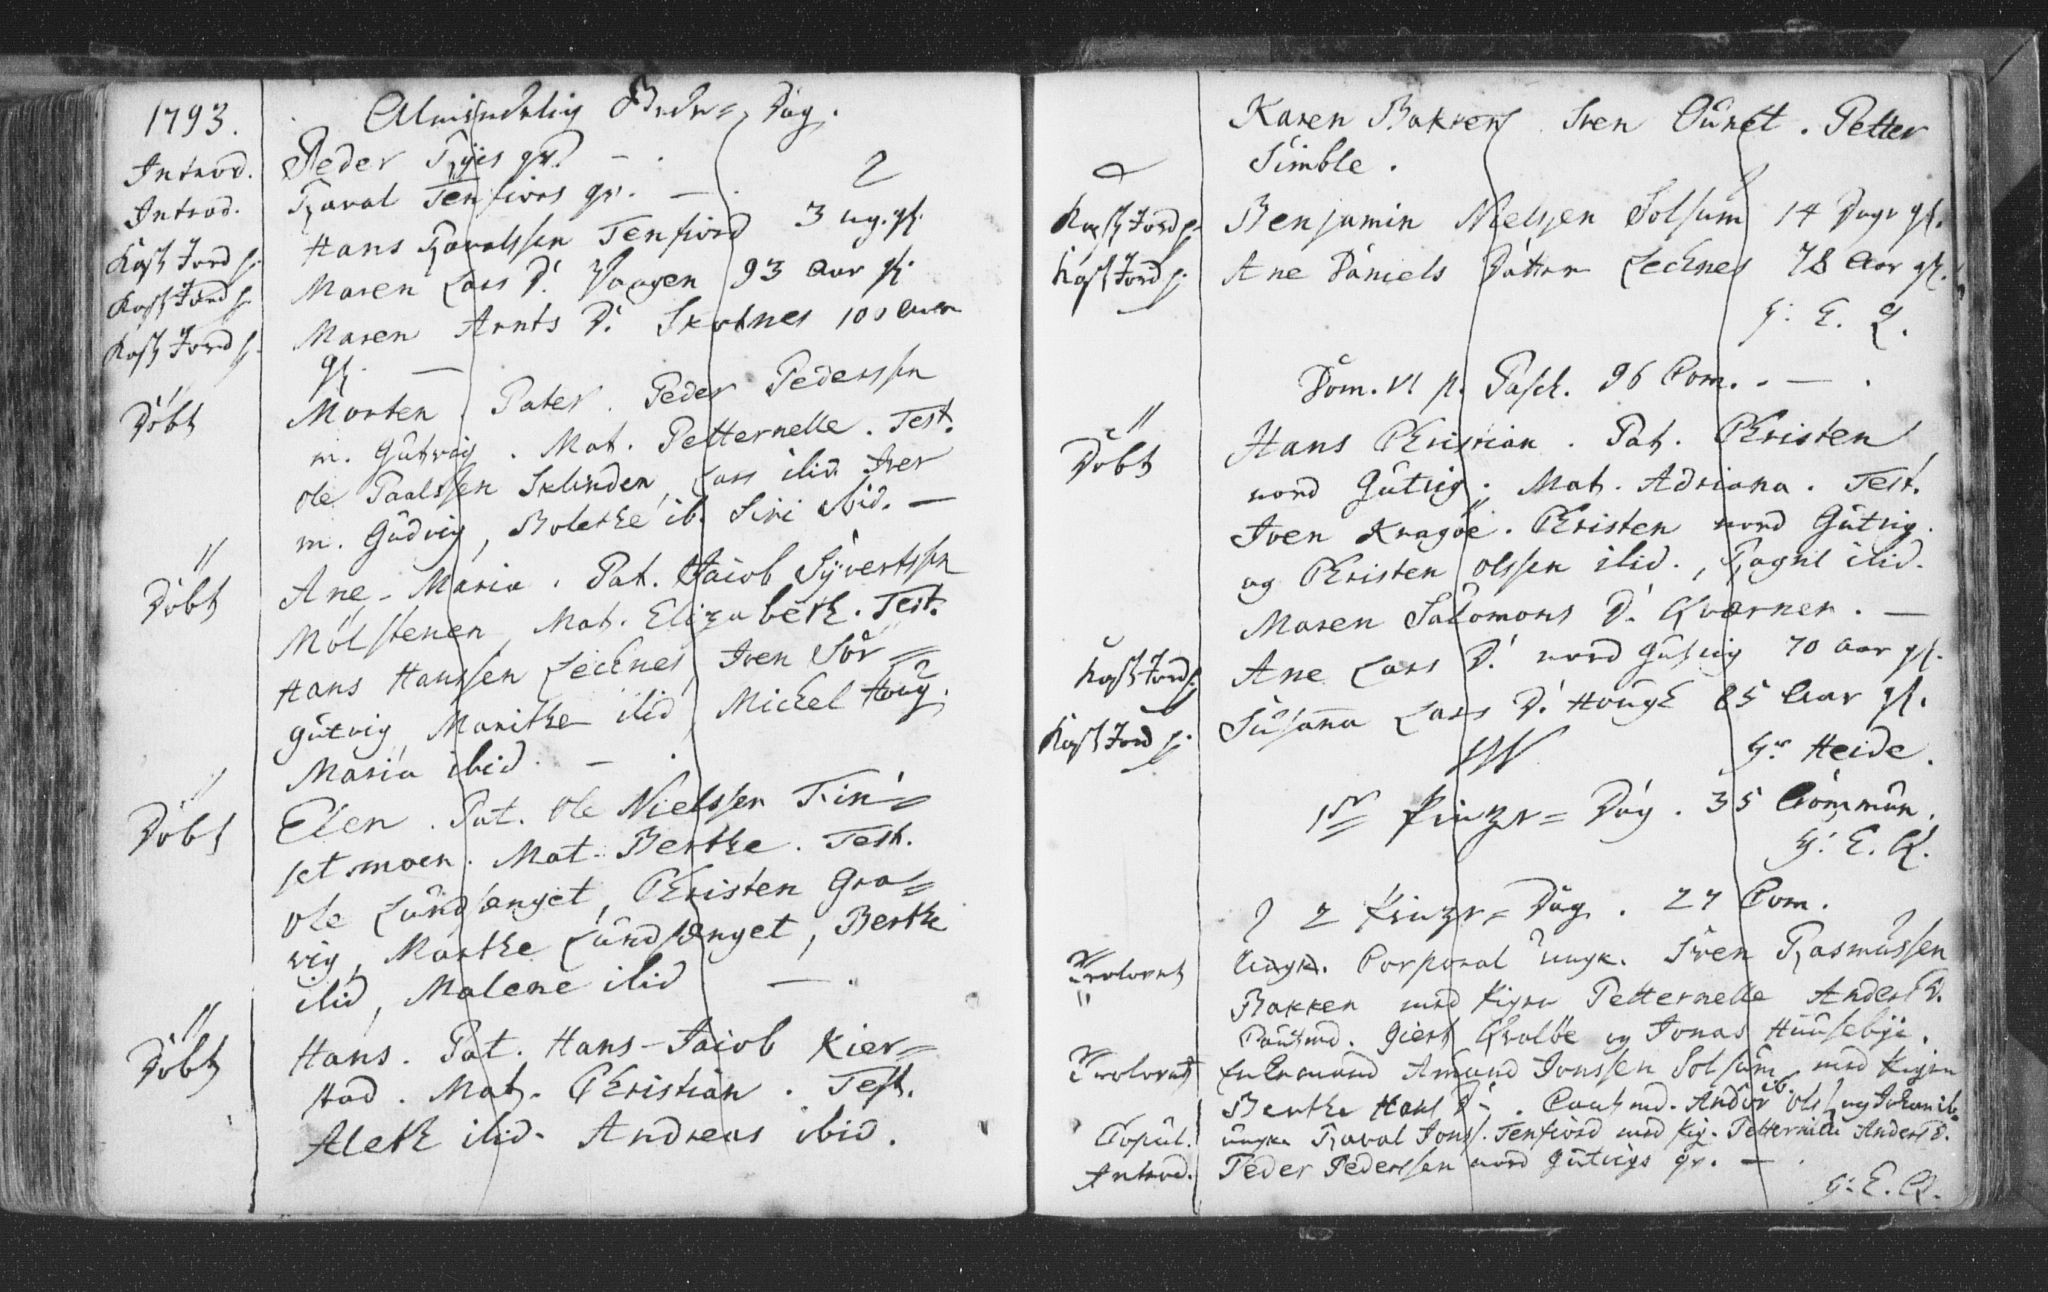 1793. Almindelig Bede= Dag.
Introd. Peder Ryis qv. — .
Introd. Raval Tenfiors qv. — .
Kast Jord p. Hans Ravalssen Tenfiord 3 ug. gl.
Kast Jord p. Maren Lars D. Vaagen 93 Aar gl.
Kast Jord p. Maren Arnts D. Skotnes 100 Aar
gl. —
Döbt Morten . Pater . Peder Pederssen
m. Gutvig . Mat. Petternelle . Test.
Ole Paalssen Sklinden, Lars ibid. Iver
m. Gudvig, Bolethe ib. Siri ibid. —
Döbt Ane-Maria . Pat. Jacob Syvertssen
Mölstenen, Mat. Elizabeth . Test.
Hans Hanssen Lecknes, Iven Sör=
gutvig Marithe ibid, Mickel Houg.
Maria ibid. — .
Döbt Elen . Pat. Ole Nielssen Fin=
set moen . Mat. Berthe . Test.
Ole Lundsænget, Christen Gra=
vig, Marthe Lundsænget, Berthe
ibid, Malene ibid — .
Döbt Hans . Pat. Hans-Jacob Kier=
stad . Mat. Christian . Test.
Aleth ibid. Andreas ibid.
Karen Bakken Sven Petter
Simble .
Kast Jord p. Benjamin Nielssen Solsum 14 Dage gl.
Kast Jord p. Ane Daniels Datter Lecknes 78 Aar gl.
H. E. Q.
Dom. VI p. Pasch. 96 Com. . — .
Döbt Hans Christian . Pat. Christen
nord Gutvig . Mat. Adriana . Test.
Iven Kragöe . Christen nord Gutvig .
og Christen Olssen ibid., Ragnil ibid.
Maren Salomons D. Qværnen . —
Kast Jord p. Ane Lars D. nord Gutvig 70 Aar gl.
Kast Jord p. Susanna Lars D. Hough 85 Aar gl.
Hr Heide .
1ste Pintze= Dag . 35 Commun.
H. E. Q.
2 Pintze= Dag . 27 Com.
Trolovet Corporal ungk. Sven Rasmussen
Bakken med Pigen Petternelle Anders D.
Giert Qvalöe og Jonas Huusebye .
Trolovet Enkemand Amund Jonssen Solsum med Pigen
Berthe Hans D. . Cautved. ib.
Copul. ungk. Raval Jons. Tenfiord med Pig. Petternelle Anders D.
Introd. Peder Pederssen nord Gutvigs qv. — .
H. E. Q.